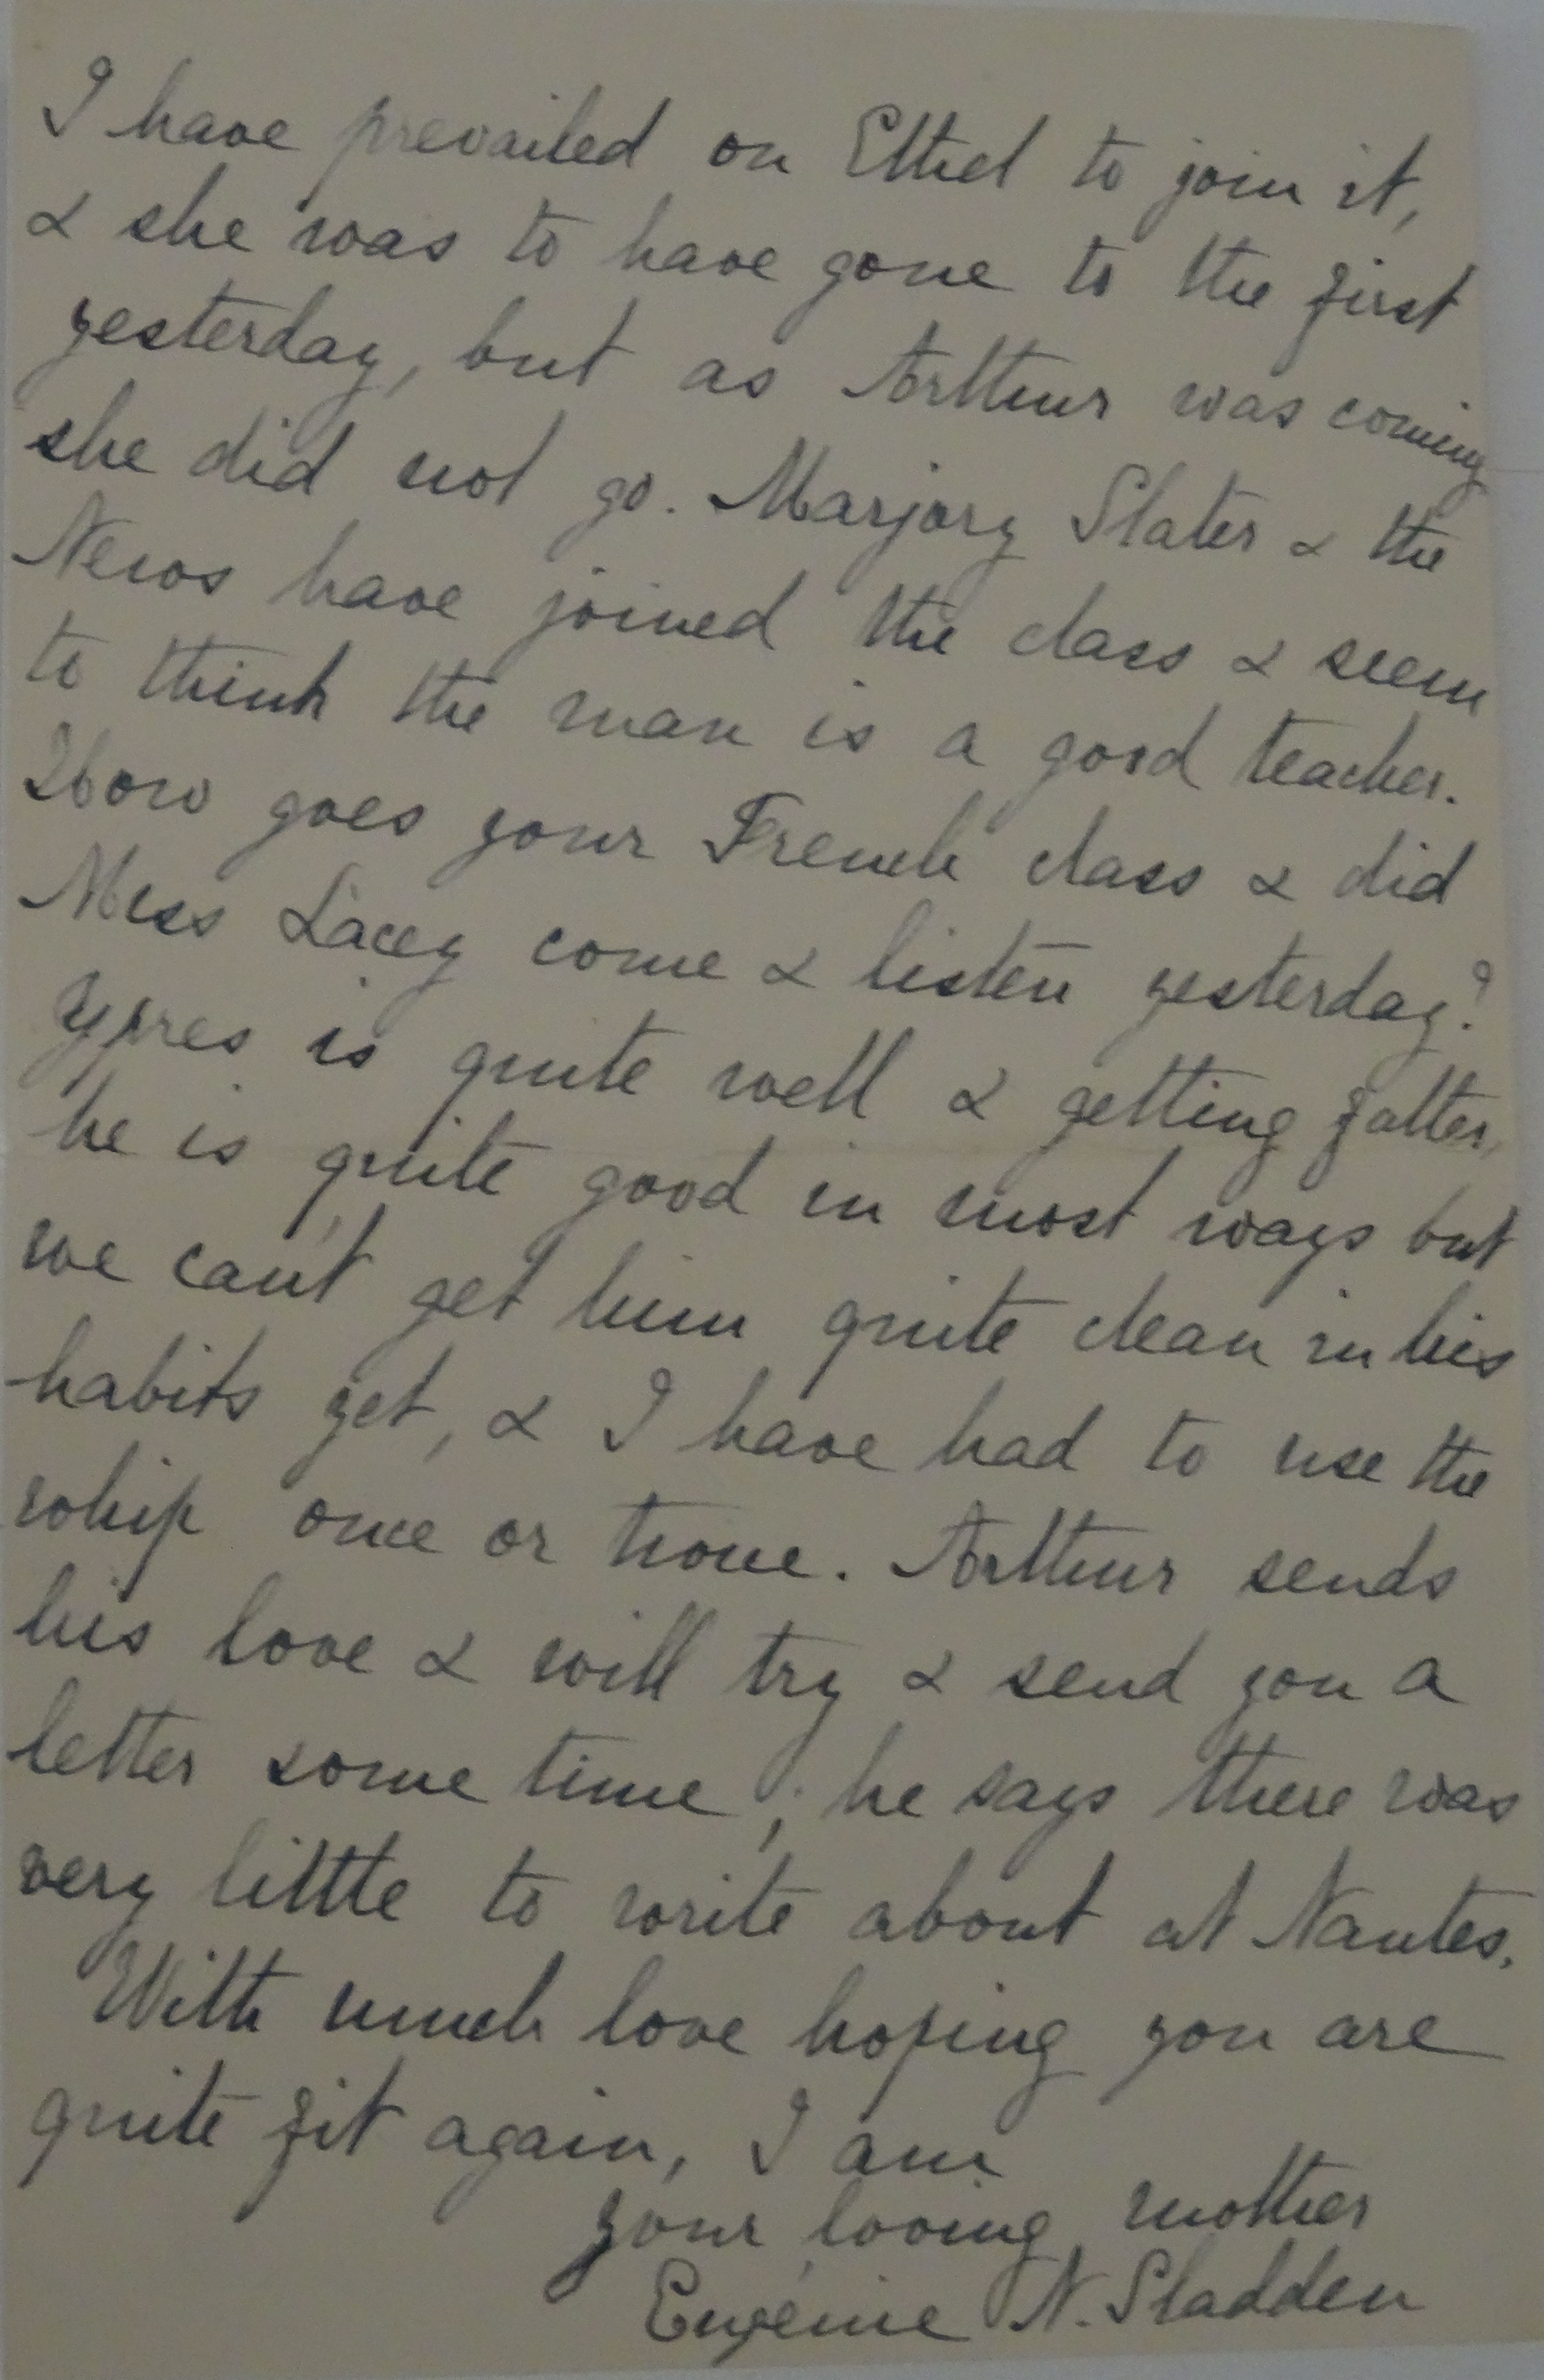 I have prevailed on Ethel to join it,
& she was to have gone to the first
yesterday, but as Arthur was coming
she did not go. Marjory Slater & the
News have joined the class & seem
to think the man is a good teacher.
How goes your French class & did
Miss Lacey come & listen yesterday?
Ypres is quite well & getting fatter,
he is quite good in most ways but
we can't get him quite clean in his
habits yet, & I have had to use the
whip once or twice. Arthur sends
his love & will try & send you a
letter some time; he says there was
very little to write about at Nantes.
With much love hoping you are
quite fit again, I am
your loving mother
Eugénie N. Sladden